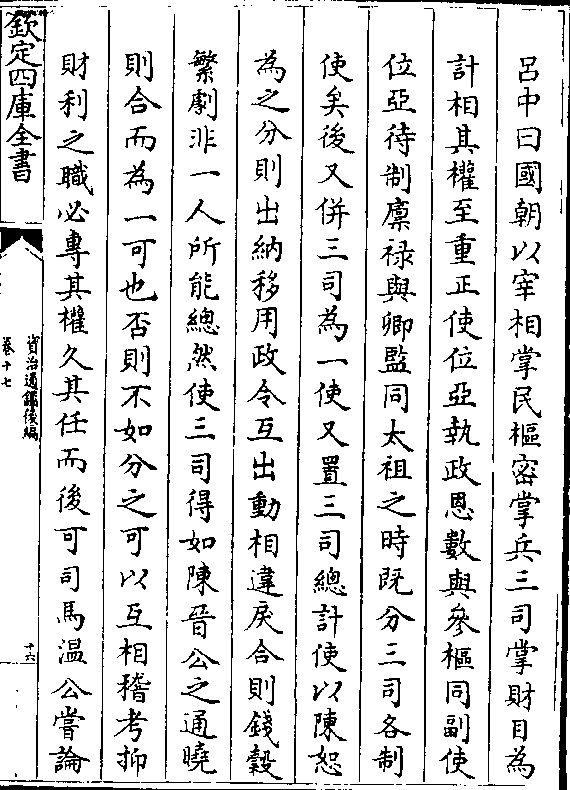 呂中曰國朝以宰相掌民樞密掌兵三司掌財目為
計相其權至重正使位亞執政恩數與參樞同副使
位亞待制廩祿與卿監同太祖之時既分三司各制
使矣後又併三司為一使又置三司總計使以陳恕
為之分則出納移用政令互出動相違戾合則錢穀
繁劇非一人所能總然使三司得如陳晉公之通曉
則合而為一可也否則不如分之可以互相稽考抑
財利之職必專其權久其任而後可司馬溫公嘗論
欽定四庫全書
資治通鑑後編
卷十七
十六